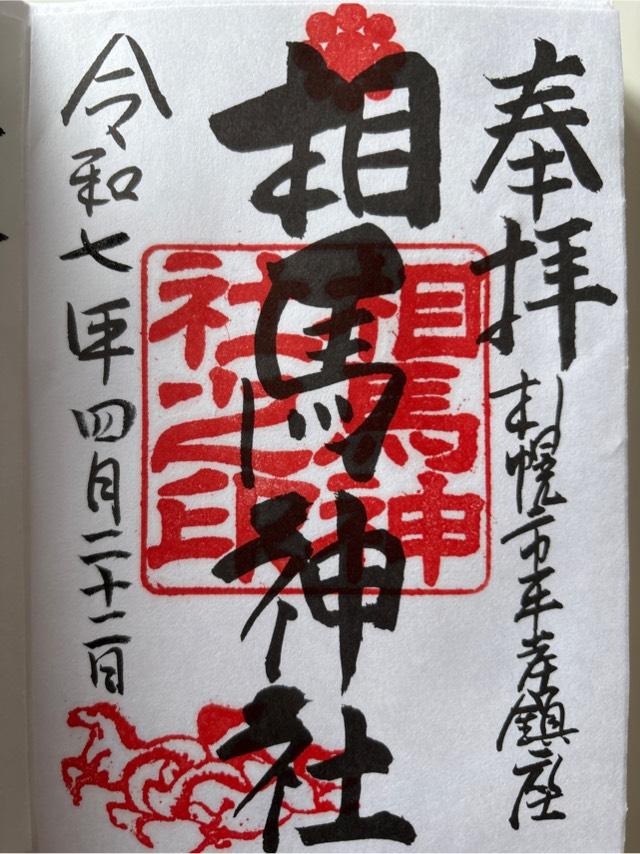 奉拝
札幌市平岸鎮座
相馬神社
相馬神
社之印
令和七年四月二十二日